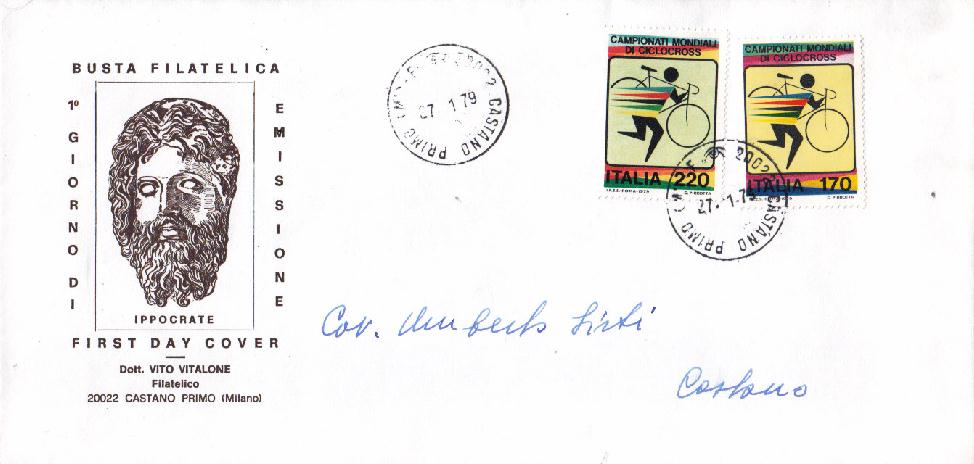 BUSTA FILATELICA
1º GIORNO DI
EMISSIONE
IPPOCRATE
FIRST DAY COVER
Dott. VITO VITALONE
Filatelico
20022 CASTANO PRIMO (Milano)
20022 CASTANO PRIMO
27 1 79
CAMPIONATI MONDIALI
DI CICLOCROSS
ITALIA 220
CAMPIONATI MONDIALI
DI CICLOCROSS
ITALIA 170
CASTANO PRIMO
27.1.79
Cav. Umberto
Castano